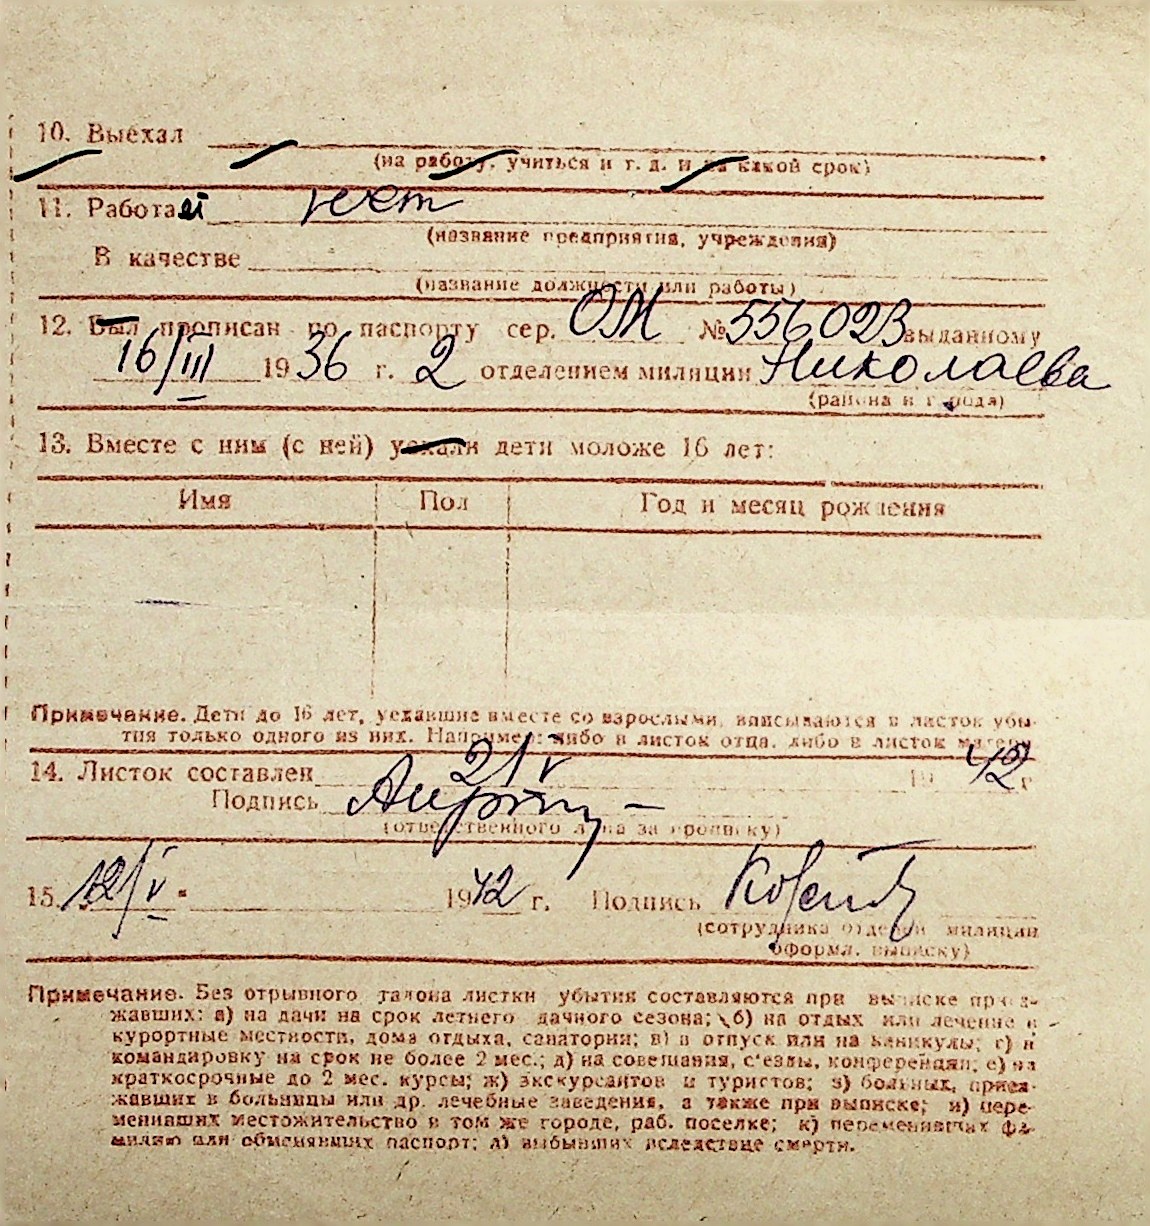 10. Выехал
(на работу, учиться и т. д. и на какой срок)
11. Работает нет
(название предприятия, учреждения)
В качестве
(название должности или работы)
12. Был прописан по паспорту сер. ОЖ № 556023 выданному
16/III 1936 г. 2 отделением милиции Николаева
(района и города)
13. Вместе с ним (с ней) уехали дети моложе 16 лет:
Имя Пол Год и месяц рождения
Примечание. Дети до 16 лет, уехавшие вместе со взрослыми, вписываются в листок убы-
тия только одного из них. Например: либо в листок отца, либо в листок матери
14. Листок составлен 21 V 1942 г
Подпись
(ответственного лица за прописку)
15. 12/V 1942 г. Подпись
(сотрудника отделен. милиции
оформл. выписку)
Примечание. Без отрывного талона листки убытия составляются при выписке приез-
жавших: а) на дачи на срок летнего дачного сезона; б) на отдых или лечение в
курортные местности, дома отдыха, санатории; в) в отпуск или на каникулы; г) в
командировку на срок не более 2 мес.; д) на совещания, с'езды, конференции; е) на
краткосрочные до 2 мес. курсы; ж) экскурсантов и туристов; з) больных, приез-
жавших в больницы или др. лечебные заведения, а также при выписке; и) пере-
менивших местожительство в том же городе, раб. поселке; к) переменивших фа-
милию или обменявших паспорт; л) выбывших вследствие смерти.